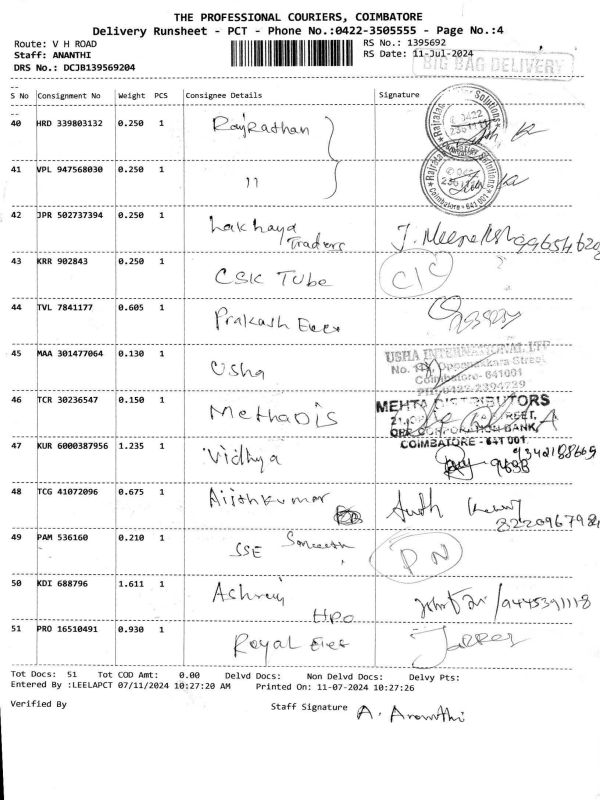 THE PROFESSIONAL COURIERS, COIMBATORE
Delivery Runsheet - PCT - Phone No.:0422-3505555 - Page No.:4
Route: V H ROAD RS No.: 1395692
Staff: ANANTHI RS Date: 11-Jul-2024
DRS No.: DCJB139569204
BIG BAG DELIVERY
S No Consignment No Weight PCS Consignee Details Signature
40 HRD 339803132 0.250 1 Rajrathan
Rajratan Solutions
41 VPL 947568030 0.250 1 11
Rajratan Solutions
Coimbatore - 641 001
42 JPR 502737394 0.250 1 Lakhaya
Traders
43 KRR 902843 0.250 1 CSK Tube C/C
44 TVL 7841177 0.605 1 Prakash Elex
45 MAA 301477064 0.130 1 Usha
USHA INTERNATIONAL LTD
Street
Coimbatore- 641001
46 TCR 30236547 0.150 1 MethaDis
MEHTA DISTRIBUTORS
STREET,
OPP CORPORATION BANK,
COIMBATORE - 641 001
47 KUR 6000387956 1.235 1 Vidhya
48 TCG 41072096 0.675 1 Ajithkumar
49 PAM 536160 0.210 1 SSE PN
50 KDI 688796 1.611 1 Ashraj
HPO 9445391118
51 PRO 16510491 0.930 1 Royal Elex
Tot Docs: 51 Tot COD Amt: 0.00 Delvd Docs: Non Delvd Docs: Delvy Pts:
Entered By :LEELAPCT 07/11/2024 10:27:20 AM Printed On: 11-07-2024 10:27:26
Verified By Staff Signature A. Ananthi